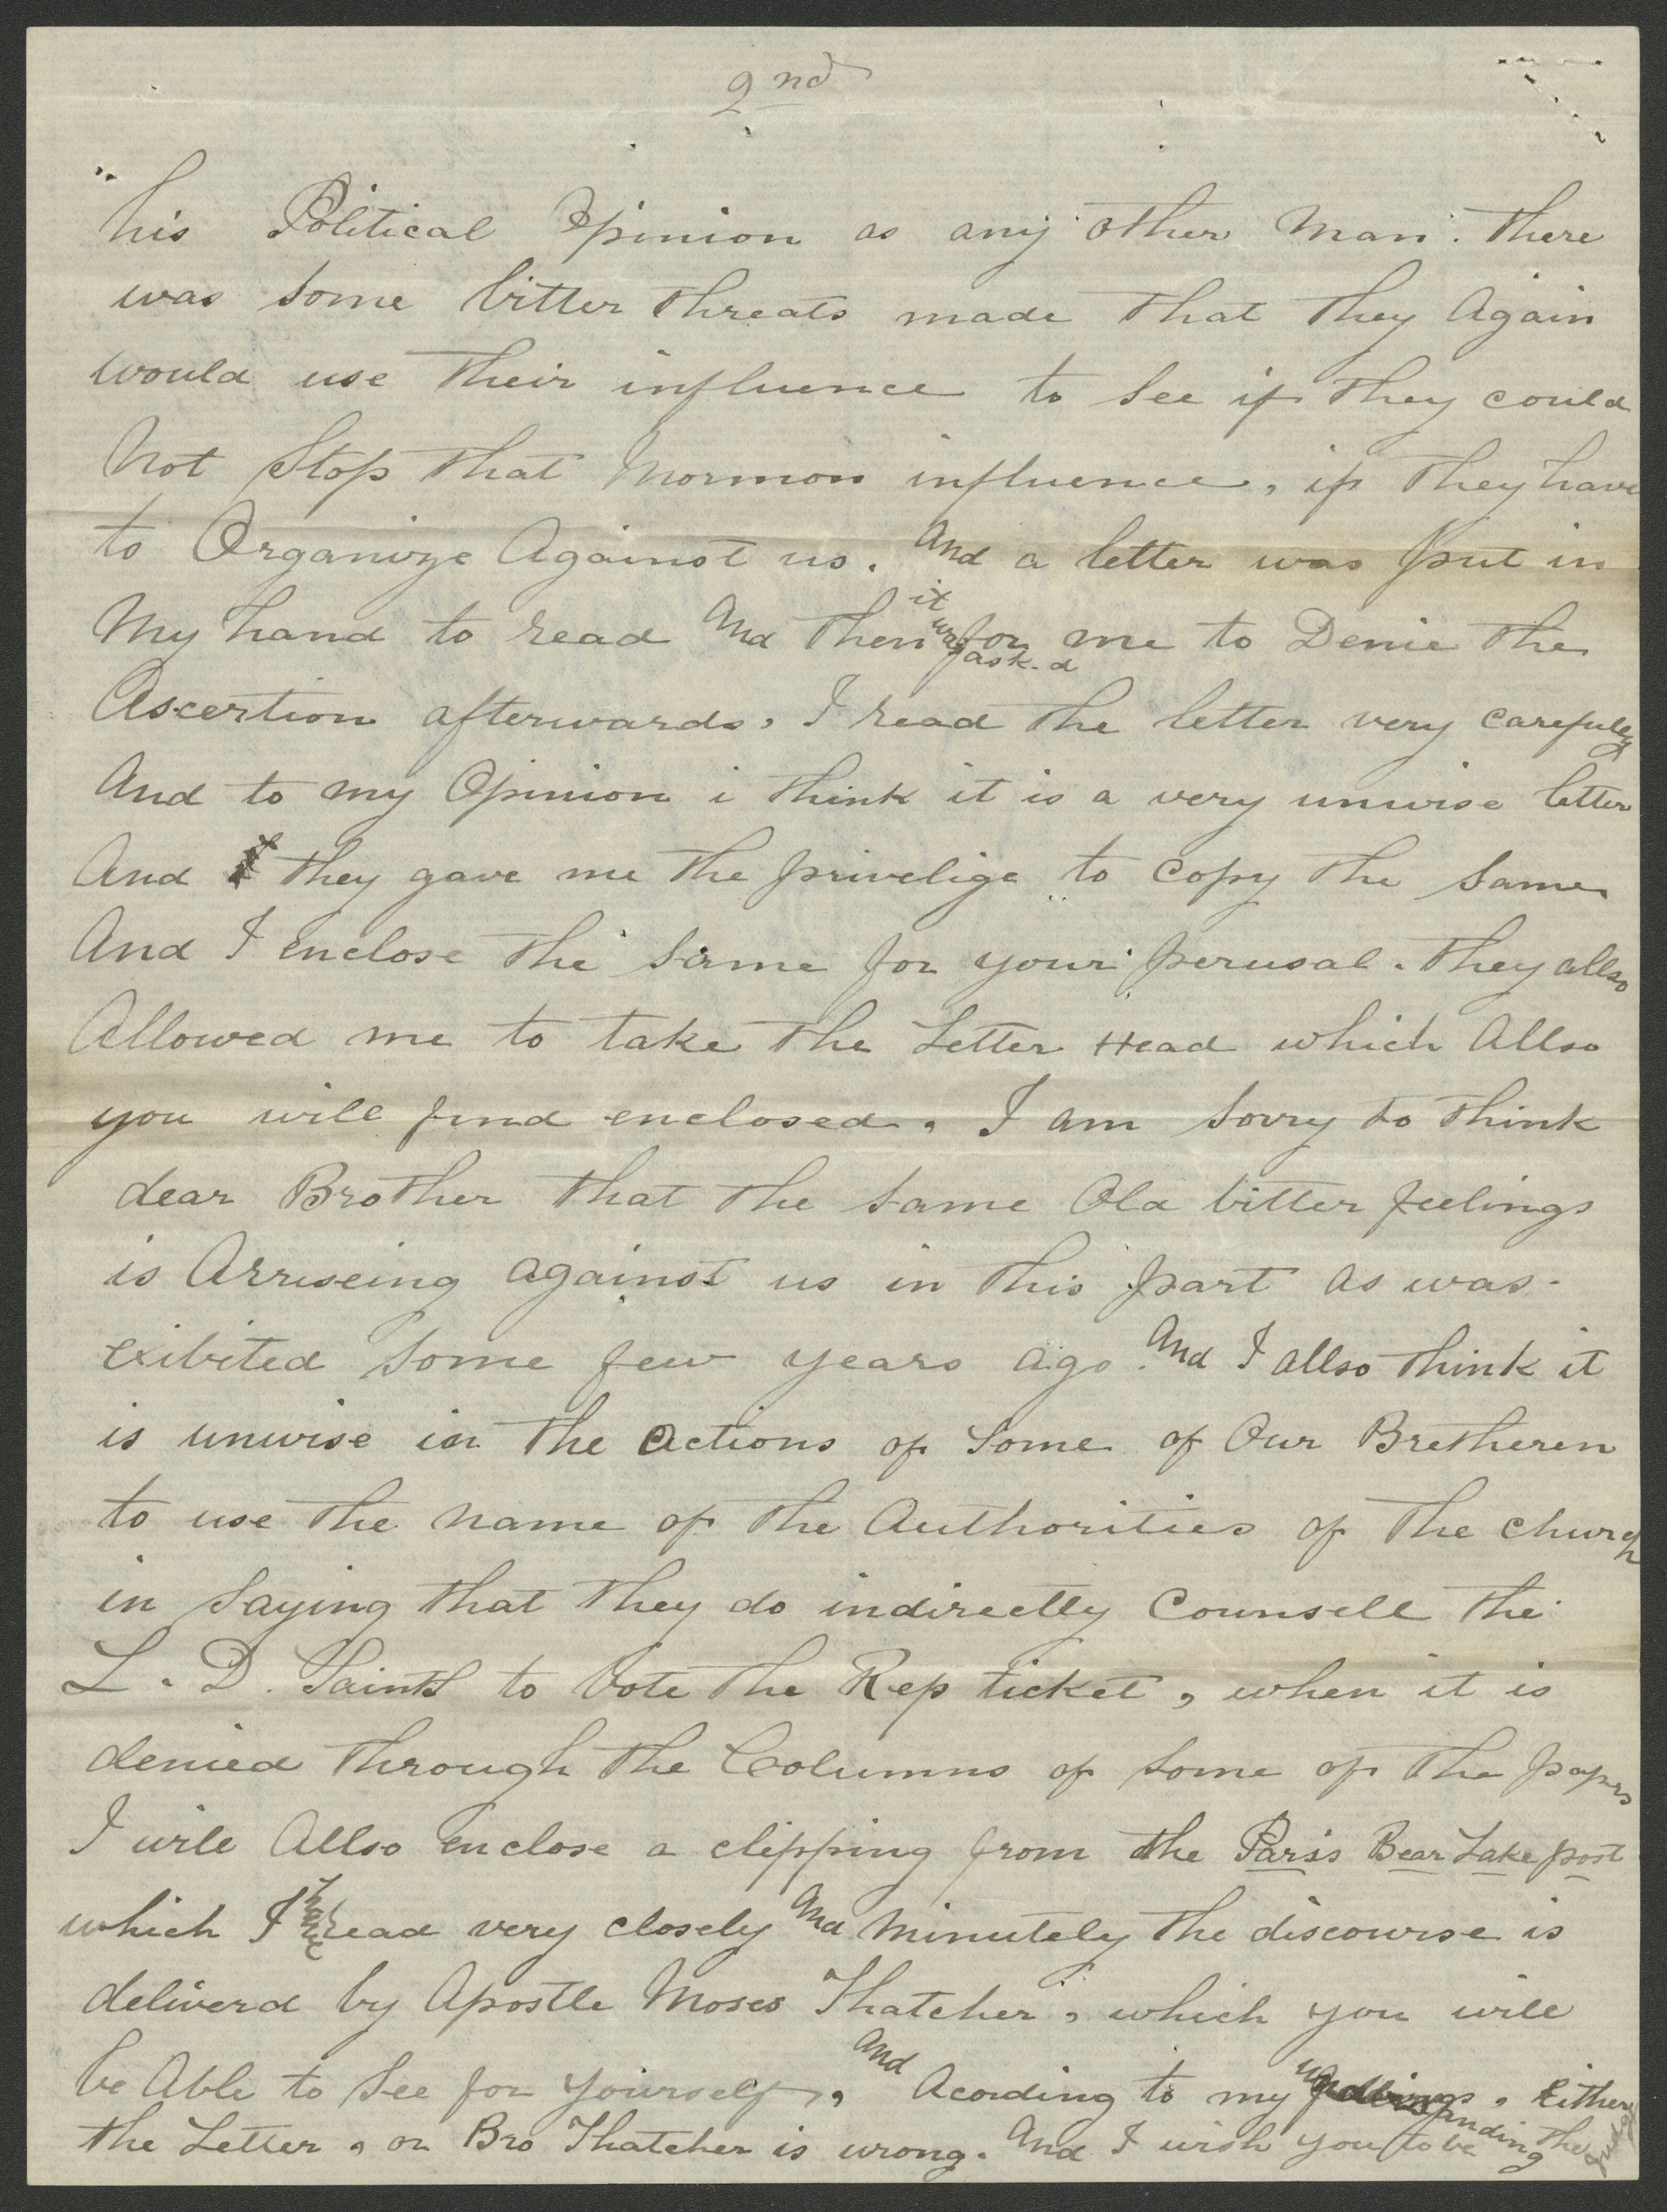 2nd
his Political Opinion as any other Man. There
was some bitter threats made that they Again
would use their influence to see if they could
Not Stop that Mormon influence, if they have
to Organize Against us. And a letter was put in
My hand to read And then it was ask.d for me to Denie the
Ascertion afterwards, I read the letter very carefuley
And to my Opinion i think it is a very unwise letter
And they gave me the privelige to Copy the Same
And I enclose the same for your perusal. They allso
Allowed me to take the Letter Head which Allso
you will find enclosed. I am Sorry to think
dear Brother that the same Old bitter feelings
is Arriseing against us in this part as was
exibited Some few years ago. And I allso think it
is unwise in the Actions of Some of Our Bretheren
to use the name of the Authorities of the church
in Saying that they do indirectly Counsell the
L. D. Saints to Vote the Rep ticket, when it is
denied through the Columns of some of the papers
I will Allso enclose a clipping from the Paris Bear Lake post
which I have read very closely And Minutely the discourse is
deliverd by Apostle Moses Thatcher, which you will
be Able to See for yourself, And Acording to my understanding, Either
the Letter, or Bro Thatcher is wrong. And I wish you to be the judge